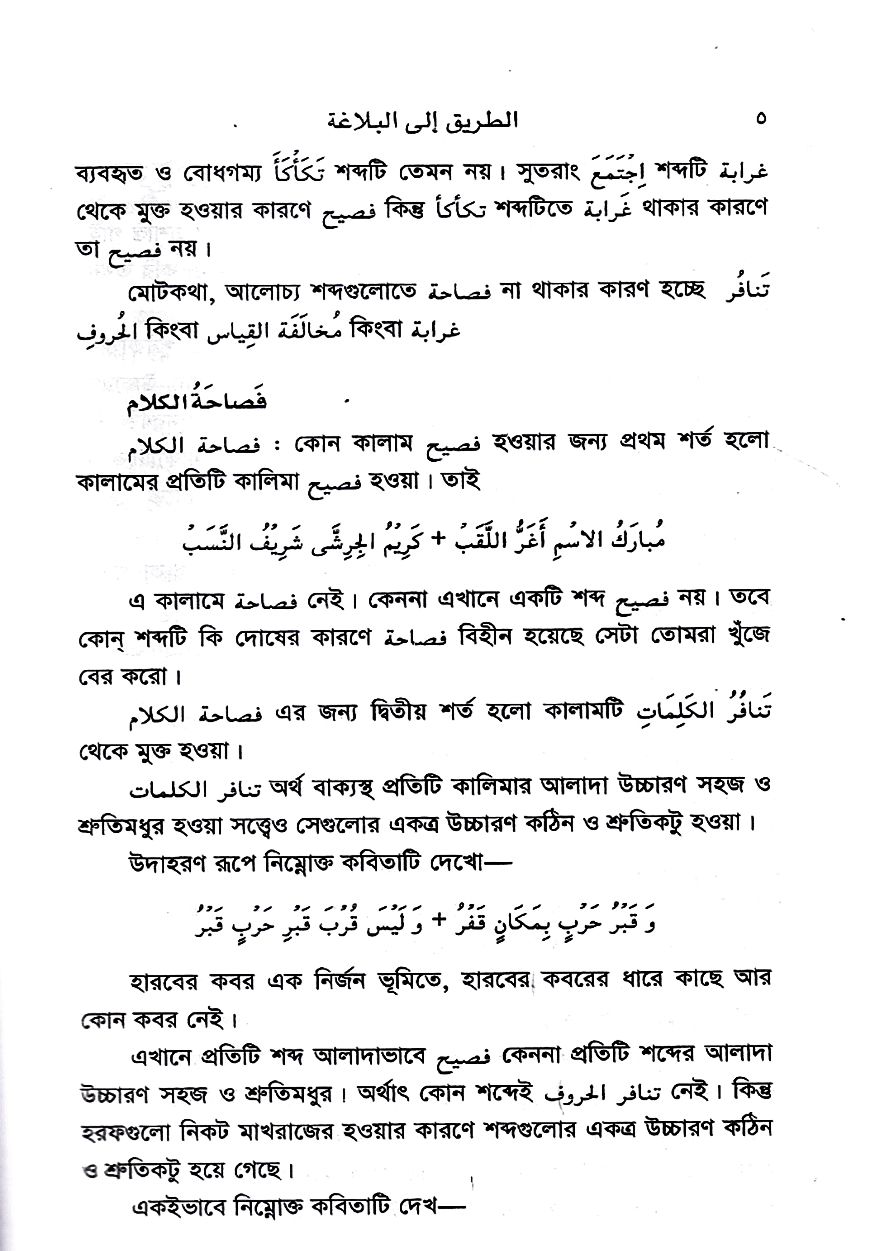 الطريق إلى البلاغة ٥
ব্যবহৃত ও বোধগম্য تَكَأْكَأَ শব্দটি তেমন নয়। সুতরাং اِجْتَمَعَ শব্দটি غرابة
থেকে মুক্ত হওয়ার কারণে فصيح কিন্তু تكأكأ শব্দটিতে غَرابة থাকার কারণে
তা فصيح নয়।
মোটকথা, আলোচ্য শব্দগুলোতে فصاحة না থাকার কারণ হচ্ছে تَنافُر
الحُروفِ কিংবা مُخالَفَة القِياس কিংবা غرابة
فَصاحَةُ الكلام
فصاحة الكلام : কোন কালাম فصيح হওয়ার জন্য প্রথম শর্ত হলো
কালামের প্রতিটি কালিমা فصيح হওয়া। তাই
مُبارَكُ الاسْمِ أَغَرُّ اللَّقَبْ + كَرِيْمُ الجِرِشَّى شَرِيْفُ النَّسَبْ
এ কালামে فصاحة নেই। কেননা এখানে একটি শব্দ فصيح নয়। তবে
কোন্ শব্দটি কি দোষের কারণে فصاحة বিহীন হয়েছে সেটা তোমরা খুঁজে
বের করো।
فصاحة الكلام এর জন্য দ্বিতীয় শর্ত হলো কালামটি تَنافُرُ الكَلِمَاتِ
থেকে মুক্ত হওয়া।
تنافر الكلمات অর্থ বাক্যস্থ প্রতিটি কালিমার আলাদা উচ্চারণ সহজ ও
শ্রুতিমধুর হওয়া সত্ত্বেও সেগুলোর একত্র উচ্চারণ কঠিন ও শ্রুতিকটু হওয়া।
উদাহরণ রূপে নিম্নোক্ত কবিতাটি দেখো—
وَ قَبْرُ حَرْبٍ بِمَكَانٍ قَفْرُ + وَ لَيْسَ قُرْبَ قَبْرِ حَرْبٍ قَبْرُ
হারবের কবর এক নির্জন ভূমিতে, হারবের কবরের ধারে কাছে আর
কোন কবর নেই।
এখানে প্রতিটি শব্দ আলাদাভাবে فصيح কেননা প্রতিটি শব্দের আলাদা
উচ্চারণ সহজ ও শ্রুতিমধুর। অর্থাৎ কোন শব্দেই تنافر الحروف নেই। কিন্তু
হরফগুলো নিকট মাখরাজের হওয়ার কারণে শব্দগুলোর একত্র উচ্চারণ কঠিন
ও শ্রুতিকটু হয়ে গেছে।
একইভাবে নিম্নোক্ত কবিতাটি দেখ—